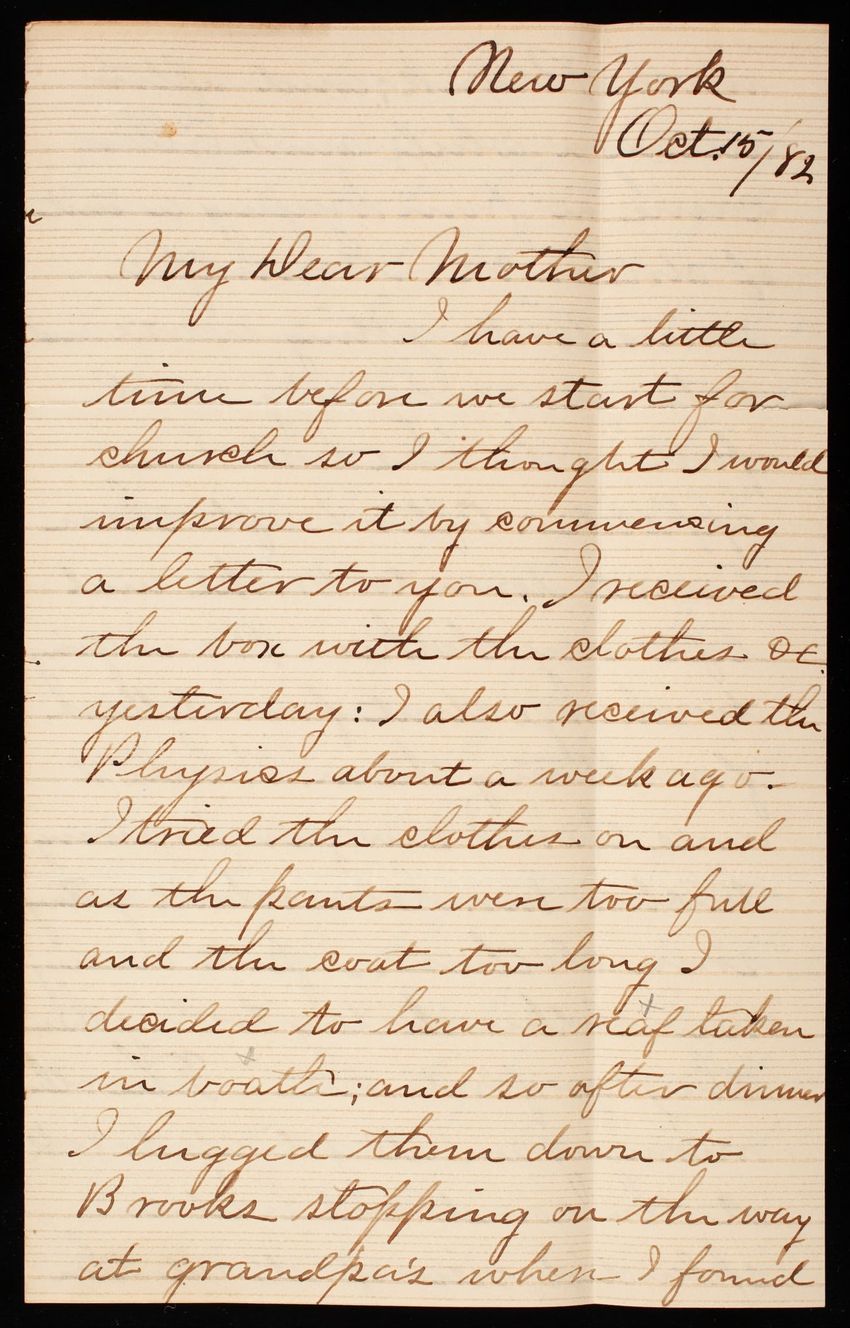 New York
Oct. 15/82
My Dear Mother
I have a little
time before we start for
church so I thought I would
improve it by commencing
a letter to you. I received
the box with the clothes &c.
yesterday: I also received the
Physics about a week ago.
I tried the clothes on and
as the pants were too full
and the coat too long I
decided to have a reaf taken
in boath; and so after dinner
I lugged them down to
Brooks stopping on the way
at grandpa's where I found